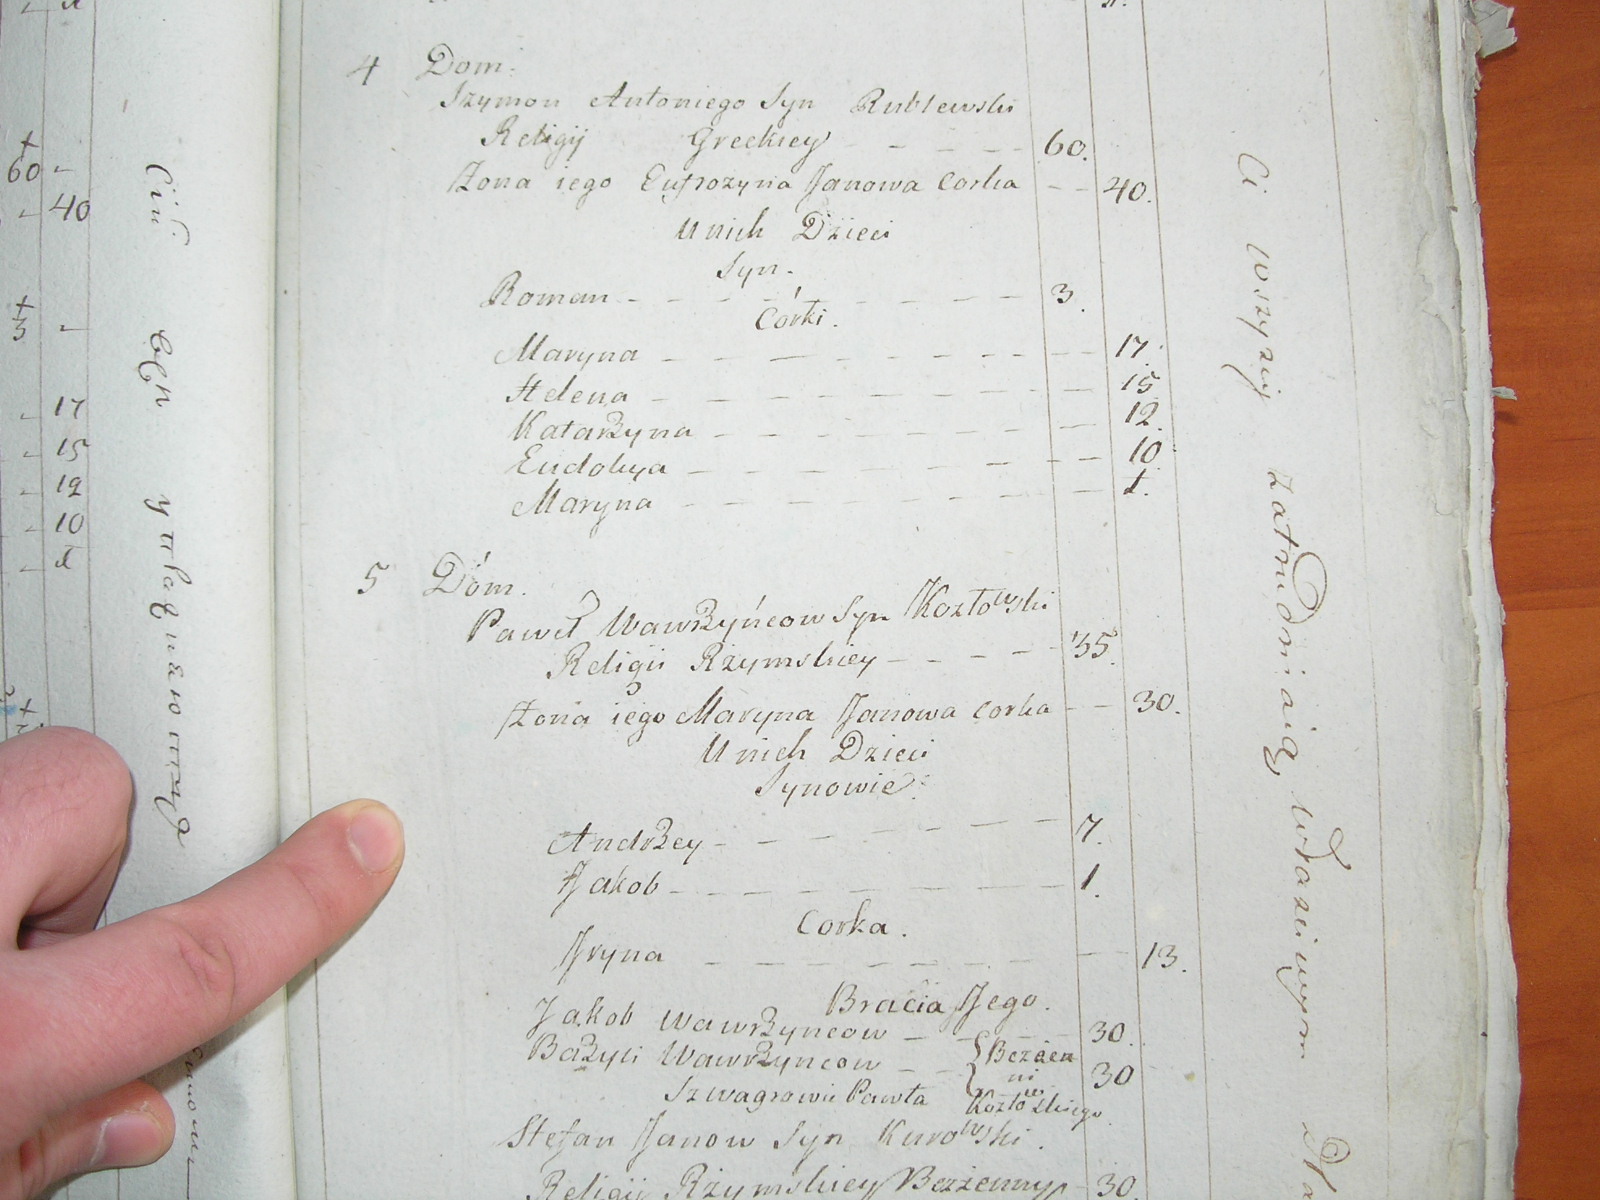 60 -
- 40
3 -
- 17
- 15
- 12
- 10
4 Dom.
Szymon Antoniego Syn Rublewski
Religij Greckiey - - - - 60.
Żona iego Eufrozyna Janowa Corka - - 40.
U nich Dzieci
Syn.
Roman - - - - - - - - 3.
Córki.
Maryna - - - - - - - - 17.
Helena - - - - - - - - 15
Katarzyna - - - - - - - 12.
Eudokya - - - - - - - 10
Maryna - - - - - - - 1.
5 Dóm.
Paweł Wawrzyńcow Syn Kozłowski
Religii Rzymskiey - - - - 35.
Żona iego Maryna Janowa corka - - 30.
U nich Dzieci
Synowie.
Andrzey - - - - - - - 7.
Jakob - - - - - - - - 1.
Corka.
Jryna - - - - - - - - 13.
Bracia Jego.
Jakob Wawrzyncow - - - - 30.
Bazyli Wawrzyncow - - { Bezżen
ni 30
Szwagrowie Pawła Kozłowskiego
Stefan Janow Syn Kurowski.
Religii Rzymskiey Bezżenny - 30.
Ci wszyscy zatrudniaią właściwym